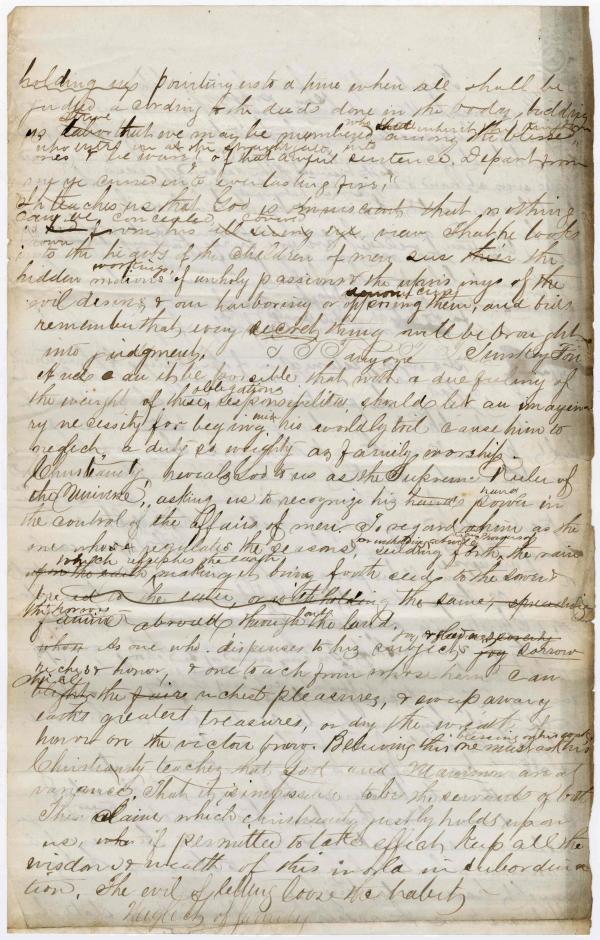 holding us pointing us to a time when all shall be
judged according to the deeds done in the body, bidding
strive
us labor that we may be numbered among the bless
who inherit the kingdom
ones & be warned of that awful sentence. Depart from
me ye cursed into everlasting fire,"
It teaches us that God is omniscient that nothing
can be concealed
from his all seeing eye, view That he looks
down
into the hearts of the children of men sees their the
workings
hidden motions of unholy passions & the uprisings of the
evil desires & our harboring or opposing them, and bids
remember that every secret thing will be brought
into judgment.
any one
And can it be possible that with a due feeling of
obligations
the weight of these responsibilities should let an imagina
ry necessity for begining his worldly toil cause him to
neglect a duty so weighty as family worship.
Christianity reveals God to us as the Supreme Ruler of
the Universe, asking us to recognize his hand & power in
the control of the affairs of men. To regard him as the
one who regulates the seasons, sending forth the rain
which refreshes the earth
making it bring forth seed to the sower
or withholding the same, spreading
the horrors
of famine abroad through the land.
As one who dispenses to his subjects joy sorrow
riches & honor, & one each from whose hand can
blight the richest pleasures, & sweep away
earths greatest treasures, or dry the wreath of
honor on the victors brow. Believing this he must ask his
blessing on his
Christianity teaches that God and Mammon are at
variance That it is impossible to be the servant of both
The claims which christianity justly holds upon
us, if permitted to take effect, keep all the
wisdom & wealth of this world in subordina
tion. The evil of letting loose the habit
Neglect of family